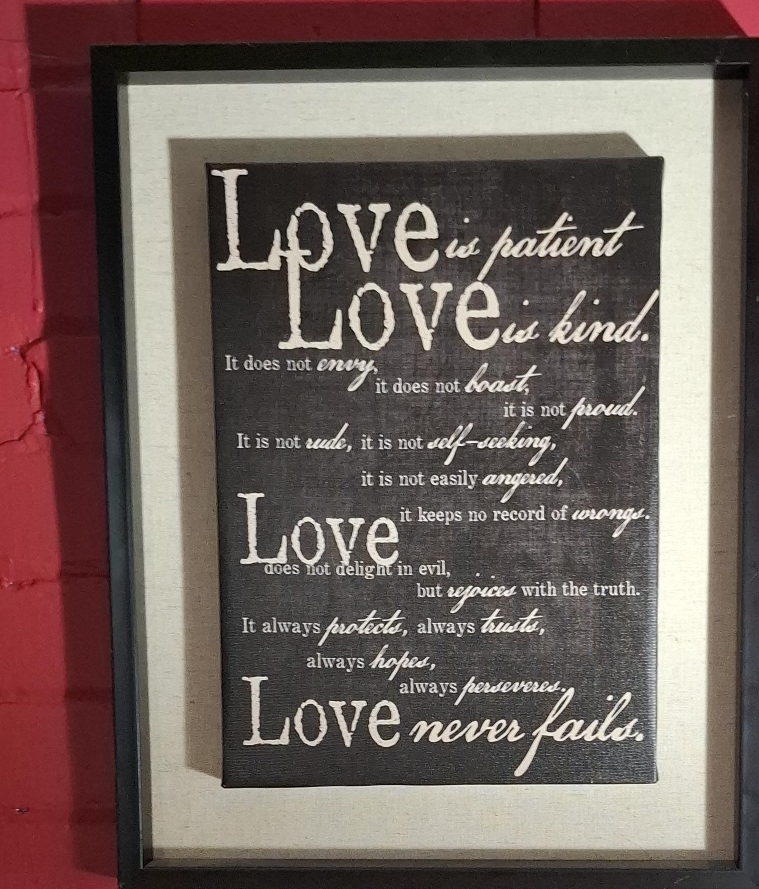 Love is patient
Love is kind.
It does not envy,
it does not boast,
it is not proud.
It is not rude, it is not self-seeking,
it is not easily angered,
it keeps no record of wrongs.
Love
does not delight in evil,
but rejoices with the truth.
It always protects, always trusts,
always hopes,
always perseveres.
Love never fails.